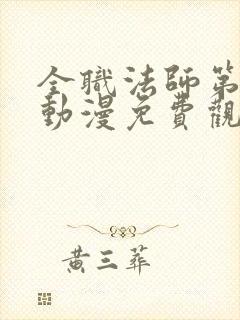 全職法師第
動漫免費觀
黃三葬